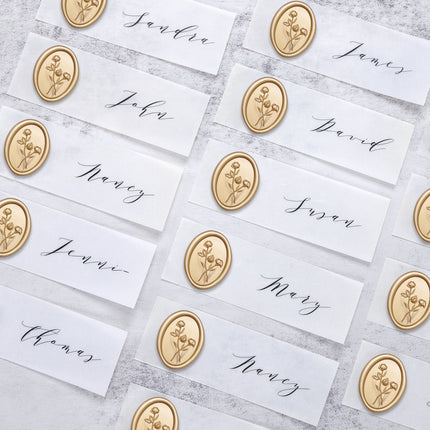 Sandra
John
Nancy
Jenni-
Thomas
James
David
Susan
Mary
Nancy